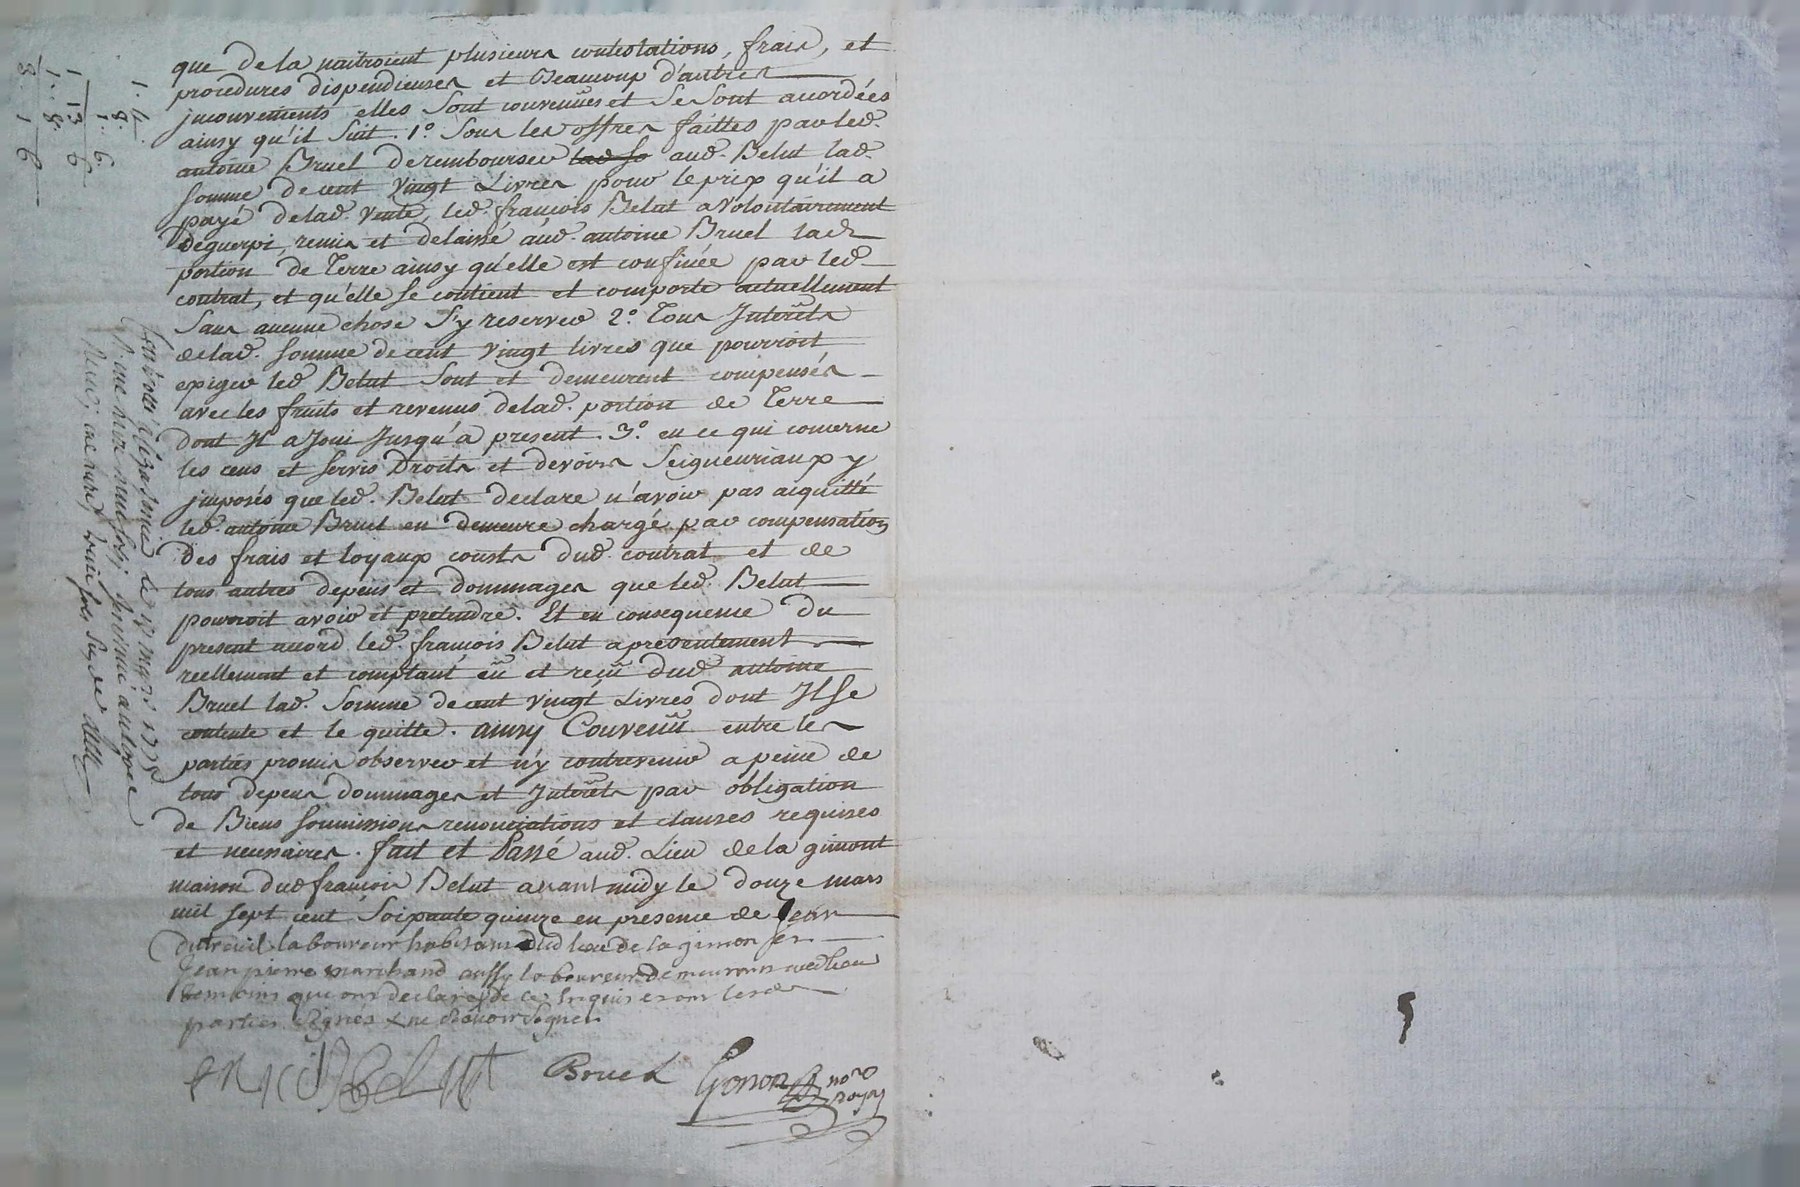 que de la naitroient plusieurs contestations, frais, et
procedures dispendieuses et Beaucoup d'autres
jnconvenients elles sont convenües et se sont acordées
ainsy qu'il suit. 1º. sous les offres faittes par led.
antoine Bruel de rembourser aud. Belut lad.
somme de cent vingt Livres pour le prix qu'il a
payé de lad. vente, led. françois Belut a volontairement
deguerpi, remis et delaissé aud. antoine Bruel lad.
portion de Terre ainsy qu'elle est confinée par led.
contrat, et qu'elle se contient et comporte actuellement
sans aucune chose s'y reserver 2º. Tous Jnterêts
de lad. somme de cent vingt livres que pourroit
exiger led. Belut sont et demeurent compensés
avec les fruits et revenus de lad. portion de Terre
dont Jl a Joui Jusqu'a present. 3º. en ce qui concerne
les cens et servis Droits et devoirs Seigneuriaux y
jmposés que led. Belut declare n'avoir pas acquitté
led. antoine Bruel en demeure chargé par compensation
des frais et loyaux cousts dud. contrat et de
tous autres depens et dommages que led. Belut
pourroit avoir et pretendre. Et en consequence du
present acord led. françois Belut a presentement
reellement et comptant eü et reçü dud. antoine
Bruel lad. somme de cent vingt Livres dont Jl se
contente et le quitte. ainsy Convenu entre les
parties promis observer et n'y contrevenir a peine de
tous depens dommages et Jnterêts par obligation
de Biens soumissions renonciations et clauses requises
et necessaires. fait et Passé aud. Lieu de la gimont
maison dud françois Belut avant midy le douze mars
mil sept cent soixante quinze en presence de Jean
dutreuil laboureur habitant dud lieu de la gimon
Jean pierre marchand aussy laboureur demeurant
temoins qui ont declaré de ce enquis et
parties signés
Belut Bruel Gonon nore
royal
le 17 mars 1775
1. 4.
8.
1. 6.
1 13 6
1. 8.
3. 1 6